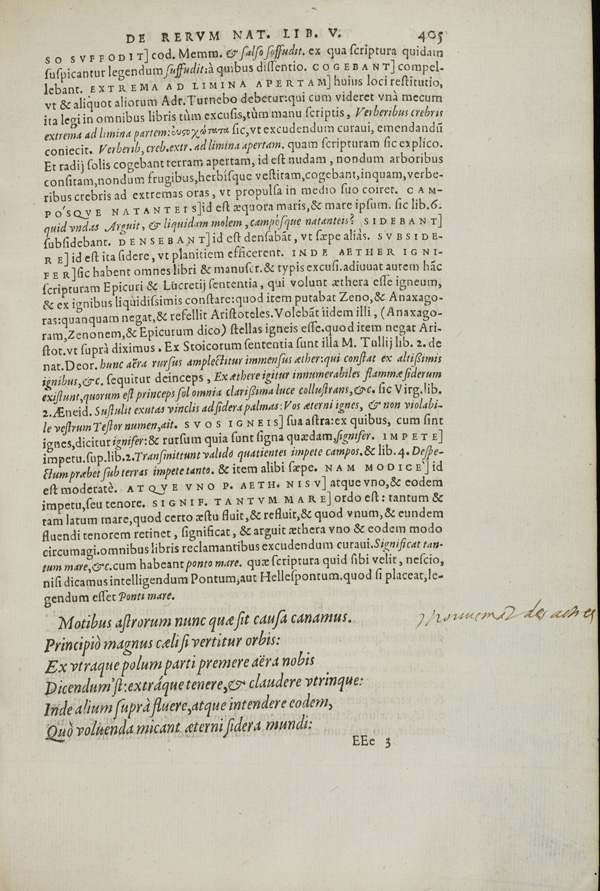 DE RERVM NAT. LIB. V. 405
SO SVFFODIT] cod. Memm. & salso soffudit. ex qua scriptura quidam
suspicantur legendum suffudit: à quibus dissentio. COGEBANT] compel-
lebant. EXTREMA AD LIMINA APERTAM] huius loci restitutio,
vt & aliquot aliorum Adr. Turnebo debetur: qui cum videret vnà mecum
ita legi in omnibus libris tùm excusis, tùm manu scriptis, Verberibus crebris
extrema ad limina partem: sic, vt excudendum curaui, emendandũ
coniecit. Verberib, creb. extr. ad limina apertam. quam scripturam sic explico.
Et radij solis cogebant terram apertam, id est nudam, nondum arboribus
consitam, nondum frugibus, herbisque vestitam, cogebant, inquam, verbe-
ribus crebris ad extremas oras, vt propulsa in medio suo coiret. CAM-
PÓSQVE NATANTEIS] id est æquora maris, & mare ipsum. sic lib. 6.
quid vndas Arguit, & liquidam molem, campósque natanteis? SIDEBANT]
subsidebant. DENSEBANT] id est densabãt, vt sæpe aliàs. SVBSIDE-
RE] id est ita sidere, vt planitiem efficerent. INDE AETHER IGNI-
FER] sic habent omnes libri & manuscr. & typis excusi. adiuuat autem hãc
scripturam Epicuri & Lucretij sententia, qui volunt æthera esse igneum,
& ex ignibus liquidissimis constare: quod item putabat Zeno, & Anaxago-
ras: quanquam negat, & refellit Aristoteles. Volebãt iidem illi, (Anaxago-
ram, Zenonem, & Epicurum dico) stellas igneis esse. quod item negat Ari-
stot. vt suprà diximus. Ex Stoicorum sententia sunt illa M. Tullij lib. 2. de
nat. Deor. hunc aëra rursus amplectitur immensus æther: qui constat ex altißimis
ignibus, &c. sequitur deinceps, Ex æthere igitur innumerabiles flammæ siderum
existunt, quorum est princeps sol omnia clarißima luce collustrans, &c. sic Virg. lib.
2. Æneid. Sustulit exutas vinclis ad sidera palmas: Vos æterni ignes, & non violabi-
le vestrum Testor numen, ait. SVOS IGNEIS] sua astra: ex quibus, cum sint
ignes, dicitur ignifer: & rursum quia sunt signa quædam, signifer. IMPETE]
impetu. sup. lib. 2. Transmittunt valido quatientes impete campos. & lib. 4. Despe-
ctum præbet sub terras impete tanto. & item alibi sæpe. NAM MODICE] id
est moderatè. ATQVE VNO P. AETH. NISV] atque vno, & eodem
impetu, seu tenore. SIGNIF. TANTVM MARE] ordo est: tantum &
tam latum mare, quod certo æstu fluit, & refluit, & quod vnum, & eundem
fluendi tenorem retinet, significat, & arguit æthera vno & eodem modo
circumagi. omnibus libris reclamantibus excudendum curaui. Significat tan-
tum mare, &c. cum habeant ponto mare. quæ scriptura quid sibi velit, nescio,
nisi dicamus intelligendum Pontum, aut Hellespontum. quod si placeat, le-
gendum esset Ponti mare.
Motibus astrorum nunc quæ sit causa canamus. Mouuement des astres
Principiò magnus cæli si vertitur orbis:
Ex vtraque polum parti premere aëra nobis
Dicendum'st: extráque tenere, & claudere vtrinque:
Inde alium suprà fluere, atque intendere eodem,
Quò voluenda micant æterni sidera mundi:
EEe 3